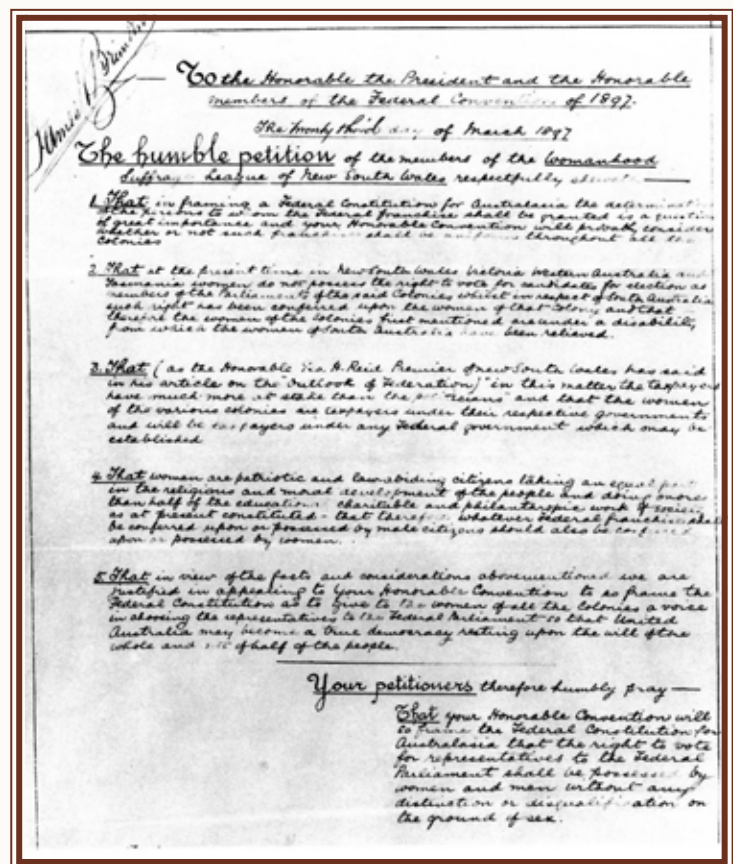 To the Honorable the President and the Honorable
members of the Federal Convention of 1897.
The Twenty third day of March 1897
The humble petition of the members of the Womanhood
Suffrage League of New South Wales respectfully
1. That in framing a Federal Constitution for Australasia the
the persons to whom the Federal Franchise shall be granted is a question
of great importance and your Honorable Convention will consider
whether or not such franchise shall be uniform throughout all the
colonies
2. That at the present time in New South Wales Victoria Western Australia and
Tasmania women do not possess the right to vote for candidates for election as
members of the Parliaments of the said Colonies whilst in respect of South Australia
such right has been conferred upon the women of that Colony and that
therefore the women of the Colonies first mentioned are under a disability
from which the women of South Australia have been relieved.
3. That (as the Honorable H. Reid Premier of New South Wales has said
in his article on the "Outlook of Federation)" in this matter the taxpayers
have much more at stake than the and that the women
of the various colonies are taxpayers under their respective governments
and will be taxpayers under any Federal government which may be
established
4. That women are patriotic and law abiding citizens taking an equal part
in the religious and moral development of the people and doing more
than half of the educational charitable and philanthropic work of society
as at present constituted - that therefore whatever Federal franchise shall
be conferred upon or possessed by male citizens should also be conferred
upon or possessed by women
5. That in view of the facts and considerations abovementioned we are
justified in appealing to Your Honorable Convention to so frame the
Federal Constitution as to give to the women of all the Colonies a voice
in choosing the representatives to the Federal Parliament so that United
Australia may become a true democracy resting upon the will of the
whole and of half of the people.
Your petitioners therefore humbly pray —
That your Honorable Convention will
so frame the Federal Constitution for
Australasia that the right to vote
for representatives to the Federal
Parliament shall be possessed by
women and men without any
distinction or disqualification on
the ground of sex.